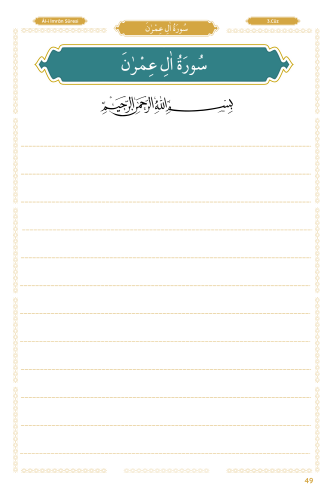 Âl-i İmrân Sûresi
سُورَةُ اٰلِ عِمْرٰنَ
3.Cüz
سُورَةُ اٰلِ عِمْرٰنَ
بِسْمِ اللّٰهِ الرَّحْمٰنِ الرَّحٖيمِ
49